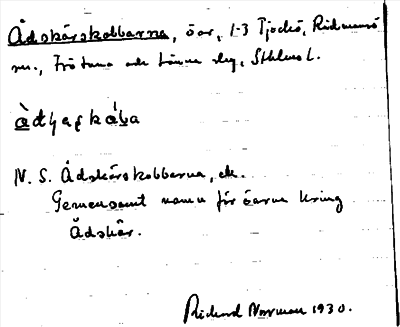 Ådskärskobbarna, öar, 1-3 Tjockö, Rådmansö
sn., Frötuna och Länna slg, Sthlms l.
N. S. Ådskärskobbarna, ek.
Gemensamt namn för öarna kring
Ådskär.
Rickard Norrman 1930.